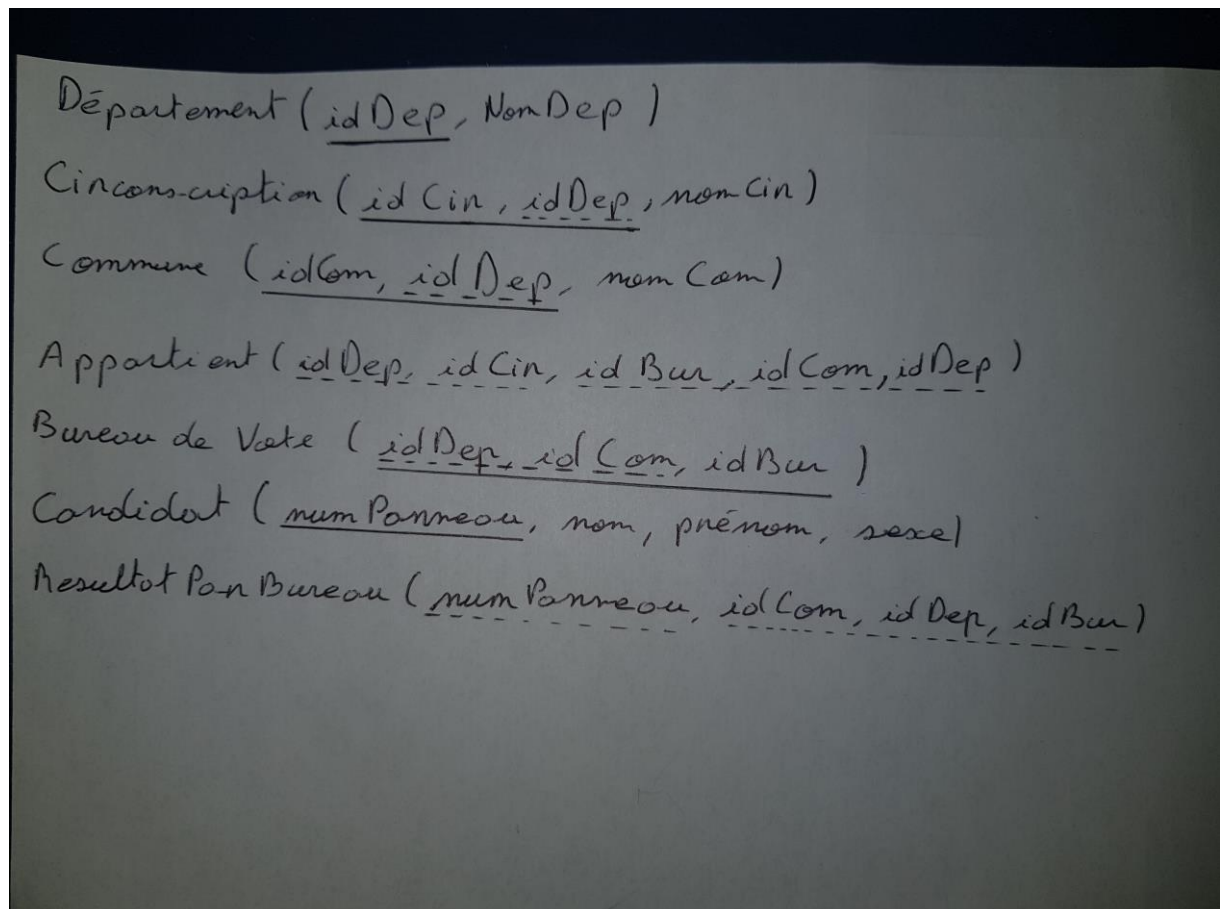 Département (idDep, NomDep)
Circonscription (idCir, idDep, nomCir)
Commune (idCom, idDep, nomCom)
Appartient (idDep, idCir, idBur, idCom, idDep)
Bureau de Vote (idDep, idCom, idBur)
Candidat (numPanneau, nom, prénom, sexe)
Resultat Par Bureau (numPanneau, idCom, idDep, idBur)